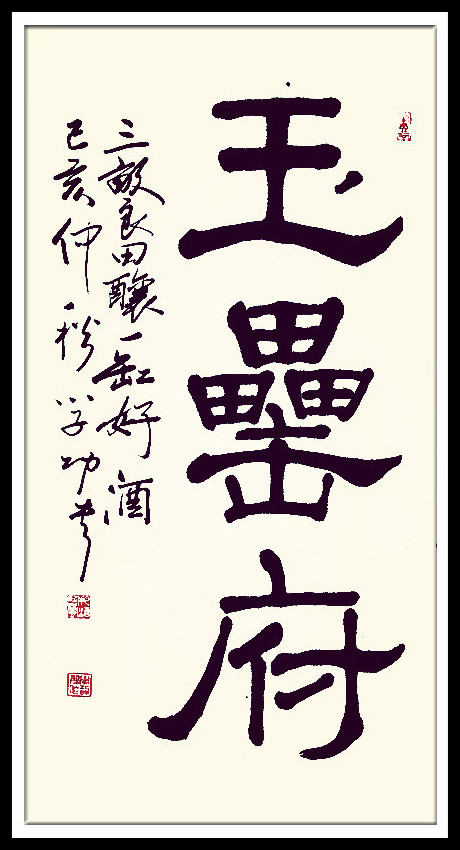 玉罍府
三畝良田釀一缸好酒
己亥仲秋学功书